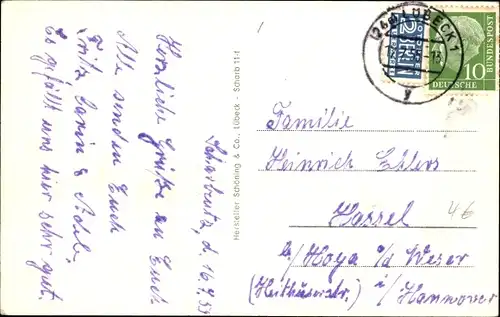 Scharbeutz, d. 16.7.55
Herzliche Grüße an Euch
Alle senden Euch
Fritz Carin &
Es gefällt uns hier sehr gut.
Hersteller Schöning & Co., Lübeck - Scharb 11-t
(24a) LÜBECK 1
2 BERLIN
10
DEUTSCHE BUNDESPOST
Familie
Heinrich Ehlers
Hassel
b/ Hoya a/d Weser
i/ Hannover
46